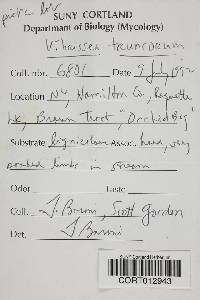 pict. LV
SUNY CORTLAND
Department of Biology (Mycology)
Vibrissea truncorum
Coll. nbr. 6896 Date 9 July 1992
Location NY, Hamilton Co, Raquette
Lk, Brown Tract "Orchid Bog"
Substrate lignicolous Assoc. hdwd, very
soaked limbs in stream
Odor Taste
Coll. T. Baroni, Scott Gordon
Det. T Baroni
SUNY Cortland Herbarium
CORT012943